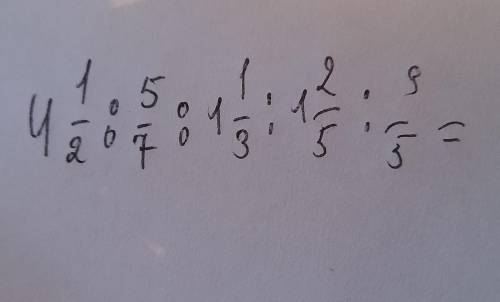 4 1/2 : 5/7 : 1 1/3 : 1 2/5 : 9/3 =